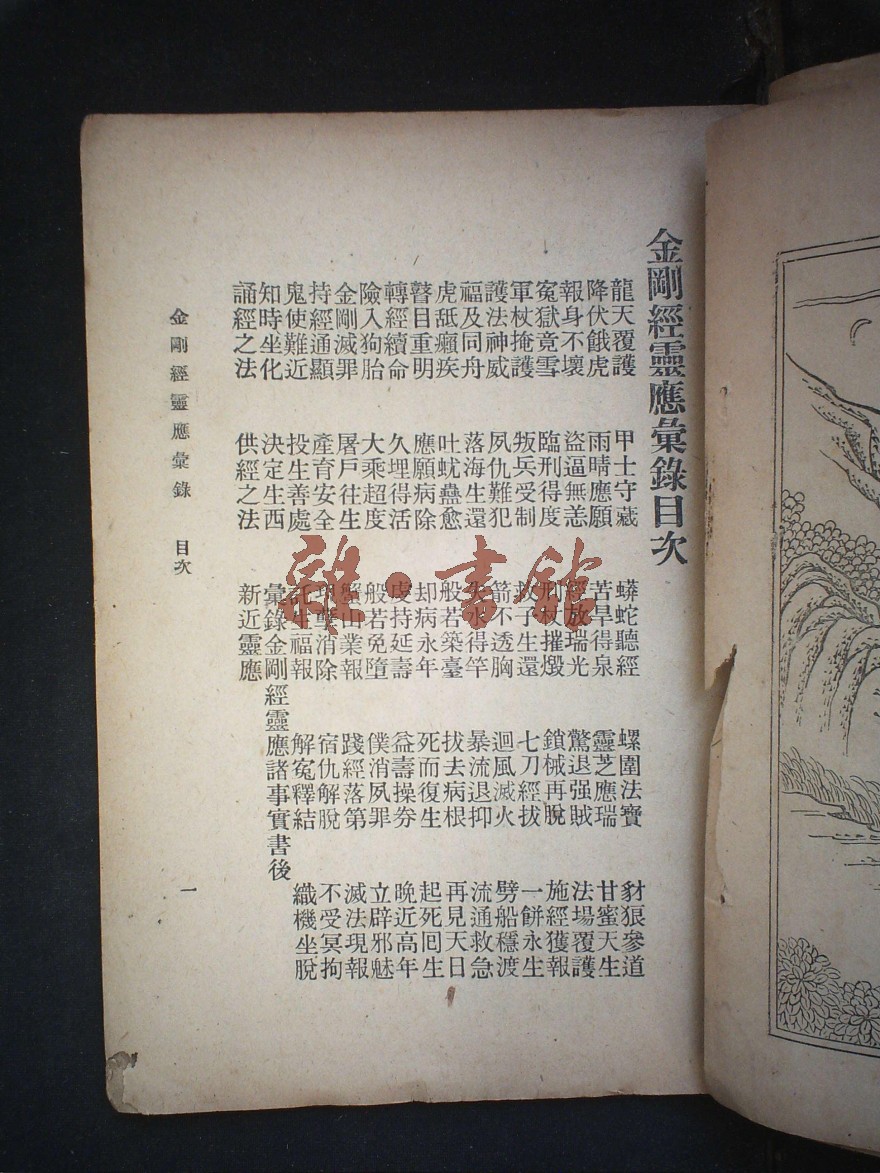 金剛經靈應彙錄目次
龍天覆護　甲士守藏　蟒蛇聽經　螺圍法寶　豺狼參道
降伏餓虎　雨晴應願　苦旱得泉　靈芝應瑞　甘蜜天生
報身不壞　盜逼無恙　經放瑞光　驚退强賊　法場覆護
冤獄竟雪　臨刑得度　刑杖摧燬　鎖械再脫　施經獲報
軍杖掩護　叛兵受制　救子生還　七刀經拔　一餅永生
護法神威　夙仇難犯　箭不透胸　迴風滅火　劈船穩渡
福及同舟　落海生還　失水得竿　暴流退抑　流通救急
虎舐癩疾　吐蚘蠱愈　般若築臺　拔去病根　再見天日
瞽目重明　應願病除　却病永年　死而復生　起死囘生
轉經續命　久埋得活　虔持延壽　益壽操券　晚近高年
險入狗胎　大乘超度　般若免墮　僕消夙罪　立辟邪魅
金剛滅罪　屠戶往生　蟹山業報　踐經落第　滅法現報
持經通顯　產育安全　孽消除　宿仇解脫　不受冥拘
鬼使難近　投生善處　託生福報　解冤釋結　織機坐脫
知時坐化　決定生西　彙錄金剛經靈應諸事實書後
誦經之法　供經之法　新近靈應
金剛經靈應彙錄　目次　一
雜·書館